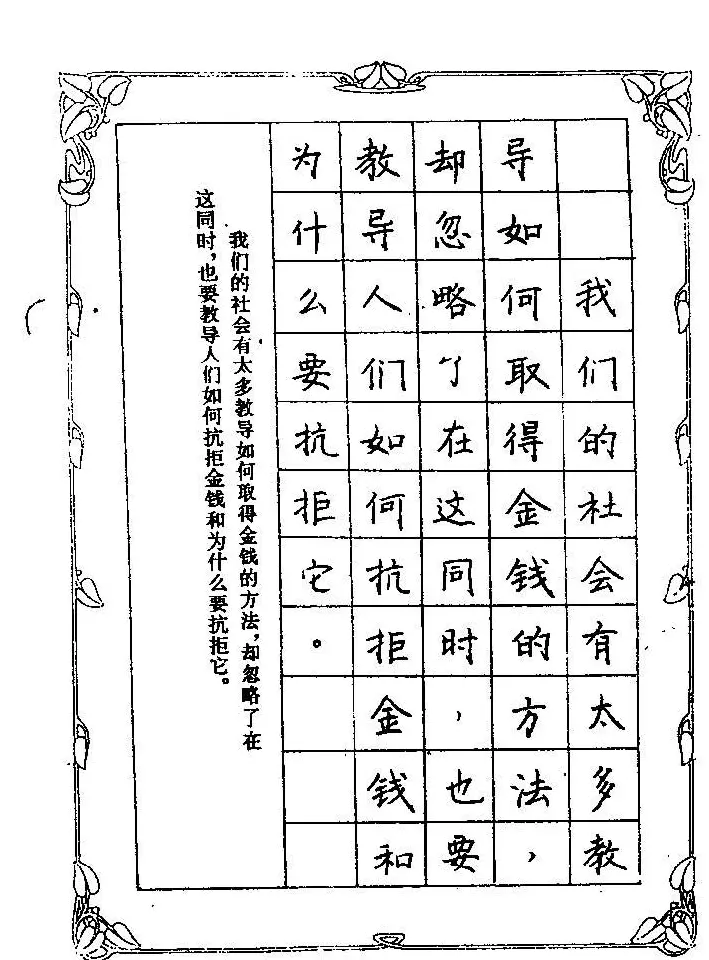 我们的社会有太多教
导如何取得金钱的方法，
却忽略了在这同时，也要
教导人们如何抗拒金钱和
为什么要抗拒它。
我们的社会有太多教导如何取得金钱的方法，却忽略了在
这同时，也要教导人们如何抗拒金钱和为什么要抗拒它。